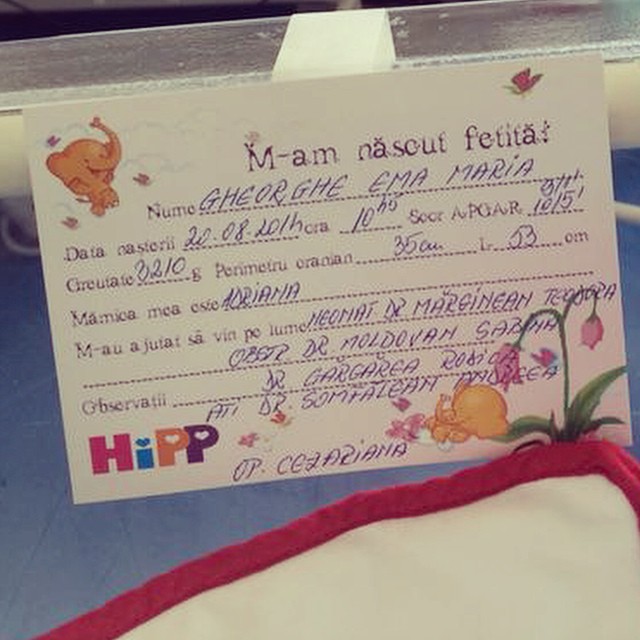 M-am născut fetiță!
Nume GHEORGHE EMA MARIA
Data nașterii 20.08.2014 ora 10 45 Scor A.P.G.A.R. 9/1' 10/5'
Greutate 3210 g Perimetru cranian 35cm L 53 cm
Mămica mea este ADRIANA
M-au ajutat să vin pe lume NEONAT DR MĂRGINEAN TEODORA
OBST DR MOLDOVAN SABINA
DR GARGAREA RODICA
Observații ATI DR
HiPP OP. CEZARIANA